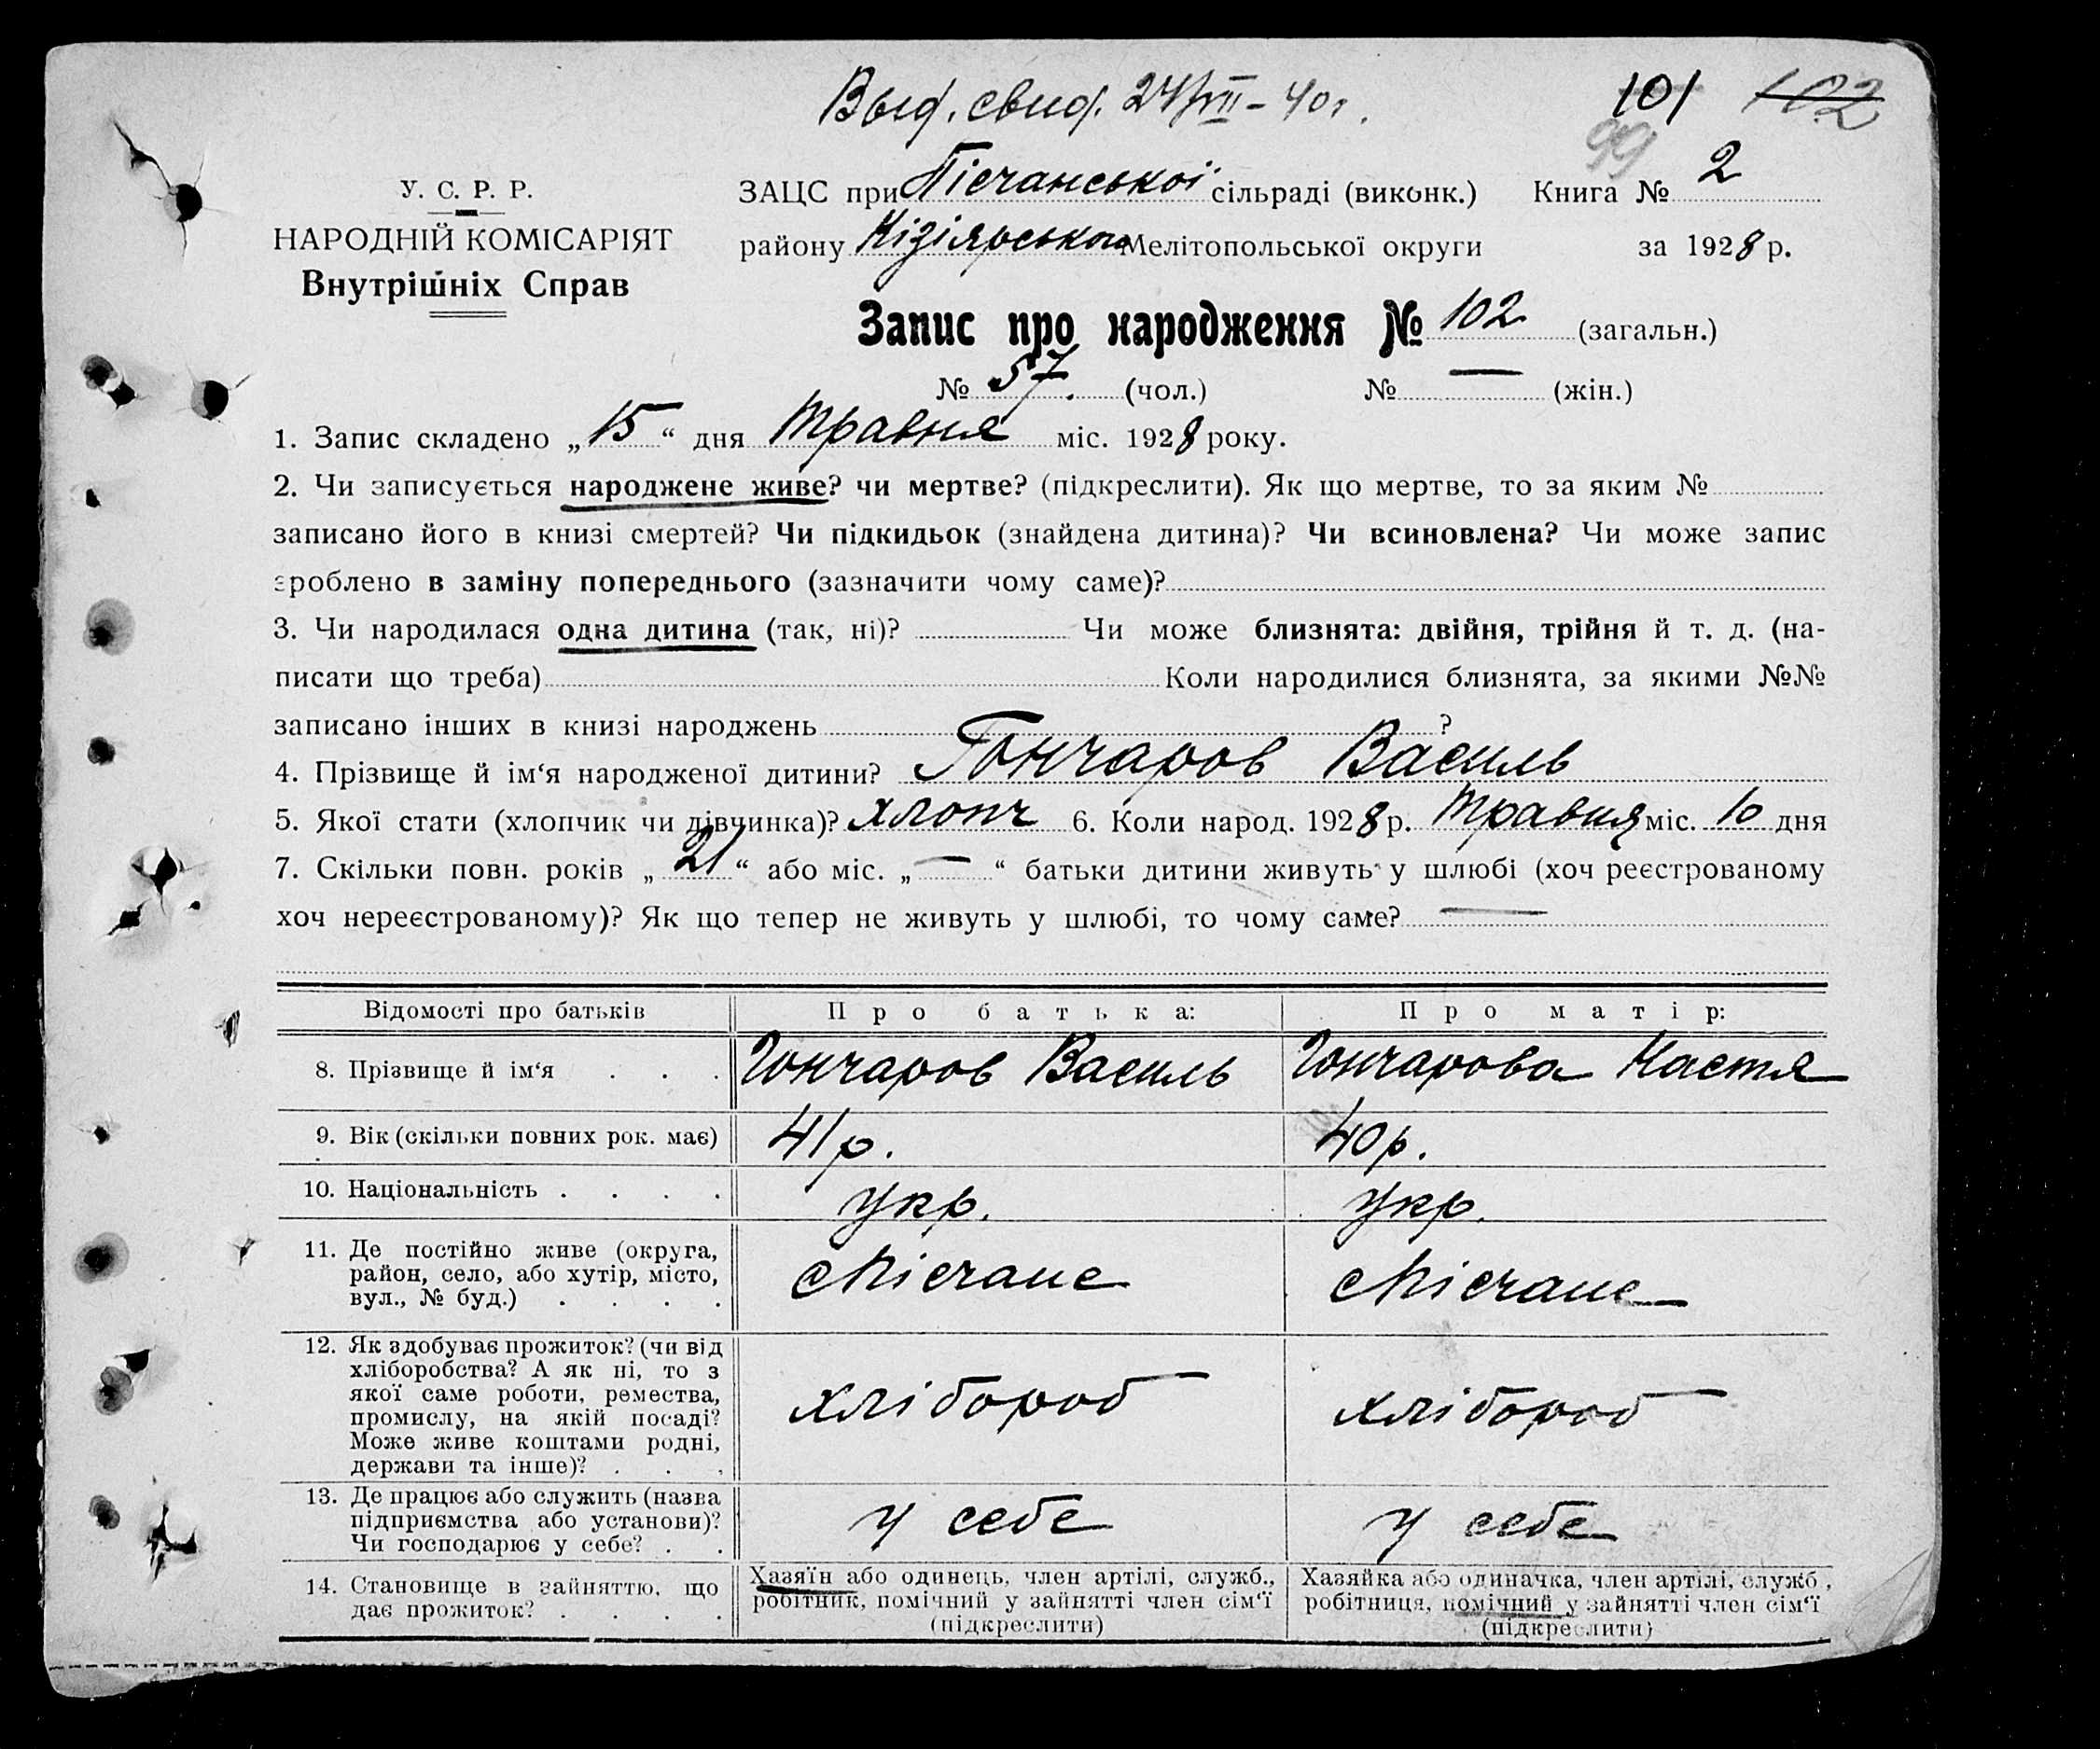 Выд. свид. 24/VII – 40 г.
101 102
99
У. С. Р. Р.
НАРОДНІЙ КОМІСАРІЯТ
Внутрішніх Справ
ЗАЦС при Пісчанської сільраді (виконк.) Книга № 2
району Кізіярського Мелітопольської округи за 1928 р.
Запис про народження № 102 (загальн.)
№ 57. (чол.) № — (жін.)
1. Запис складено „15“ дня Травня міс. 1928 року.
2. Чи записується народжене живе? чи мертве? (підкреслити). Як що мертве, то за яким №
записано його в книзі смертей? Чи підкидьок (знайдена дитина)? Чи всиновлена? Чи може запис
зроблено в заміну попереднього (зазначити чому саме)?
3. Чи народилася одна дитина (так, ні)? Чи може близнята: двійня, трійня й т. д. (на-
писати що треба) Коли народилися близнята, за якими №№
записано інших в книзі народжень ?
4. Прізвище й ім‘я народженої дитини? Гончаров Василь
5. Якої стати (хлопчик чи дівчинка)? хлопч 6. Коли народ. 1928 р. Травня міс. 10 дня
7. Скільки повн. років „21“ або міс. „—“ батьки дитини живуть у шлюбі (хоч реєстрованому
хоч нереєстрованому)? Як що тепер не живуть у шлюбі, то чому саме? —
Відомості про батьків Про батька: Про матір:
8. Прізвище й ім‘я . . . Гончаров Василь Гончарова Настя
9. Вік (скільки повних рок. має) 41 р. 40 р.
10. Національність . . . . укр. укр.
11. Де постійно живе (округа,
район, село, або хутір, місто,
вул., № буд.) . . . .
с Пісчане с Пісчане
12. Як здобуває прожиток? (чи від
хліборобства? А як ні, то з
якої саме роботи, ремества,
промислу, на якій посаді?
Може живе коштами родні,
держави та інше)? . . .
хлібороб хлібороб
13. Де працює або служить (назва
підприємства або установи)?
Чи господарює у себе? . .
у себе у себе
14. Становище в зайняттю, що
дає прожиток? . . . .
Хазяїн або одинець, член артілі, служб.,
робітник, помічний у зайнятті член сім‘ї
(підкреслити)
Хазяйка або одиначка, член артілі, служб.,
робітниця, помічний у зайнятті член сім‘ї
(підкреслити)